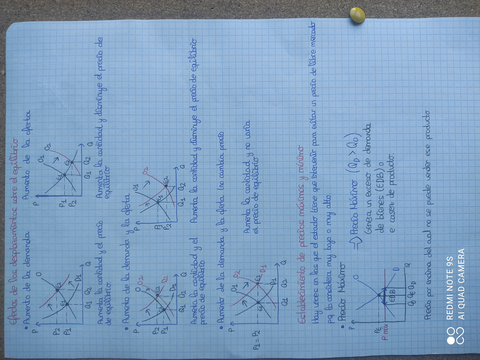 Efectos de los desplazamientos sobre el equilibrio
• Aumento de la demanda
Aumento de la oferta
Aumenta la cantidad y el precio
de equilibrio
Aumenta la cantidad y disminuye el precio de
equilibrio
• Aumento de la demanda y la oferta
Aumenta la cantidad y el
precio de equilibrio
Aumenta la cantidad y disminuye el precio de equilibrio
• Aumento de la demanda y la oferta. No cambia precio
Aumenta la cantidad y no varía
el precio de equilibrio
Establecimiento de precios máximos y mínimos
Hay veces en las que el estado tiene que intervenir para evitar un precio de libre mercado
pq lo considera muy bajo o muy alto
• Precio Máximo
=> Precio Máximo (QD > QO)
Genera un exceso de demanda
de bienes (EDB) o
escasez de producto
Precio por encima del cual no se puede vender ese producto
REDMI NOTE 9S
AI QUAD CAMERA